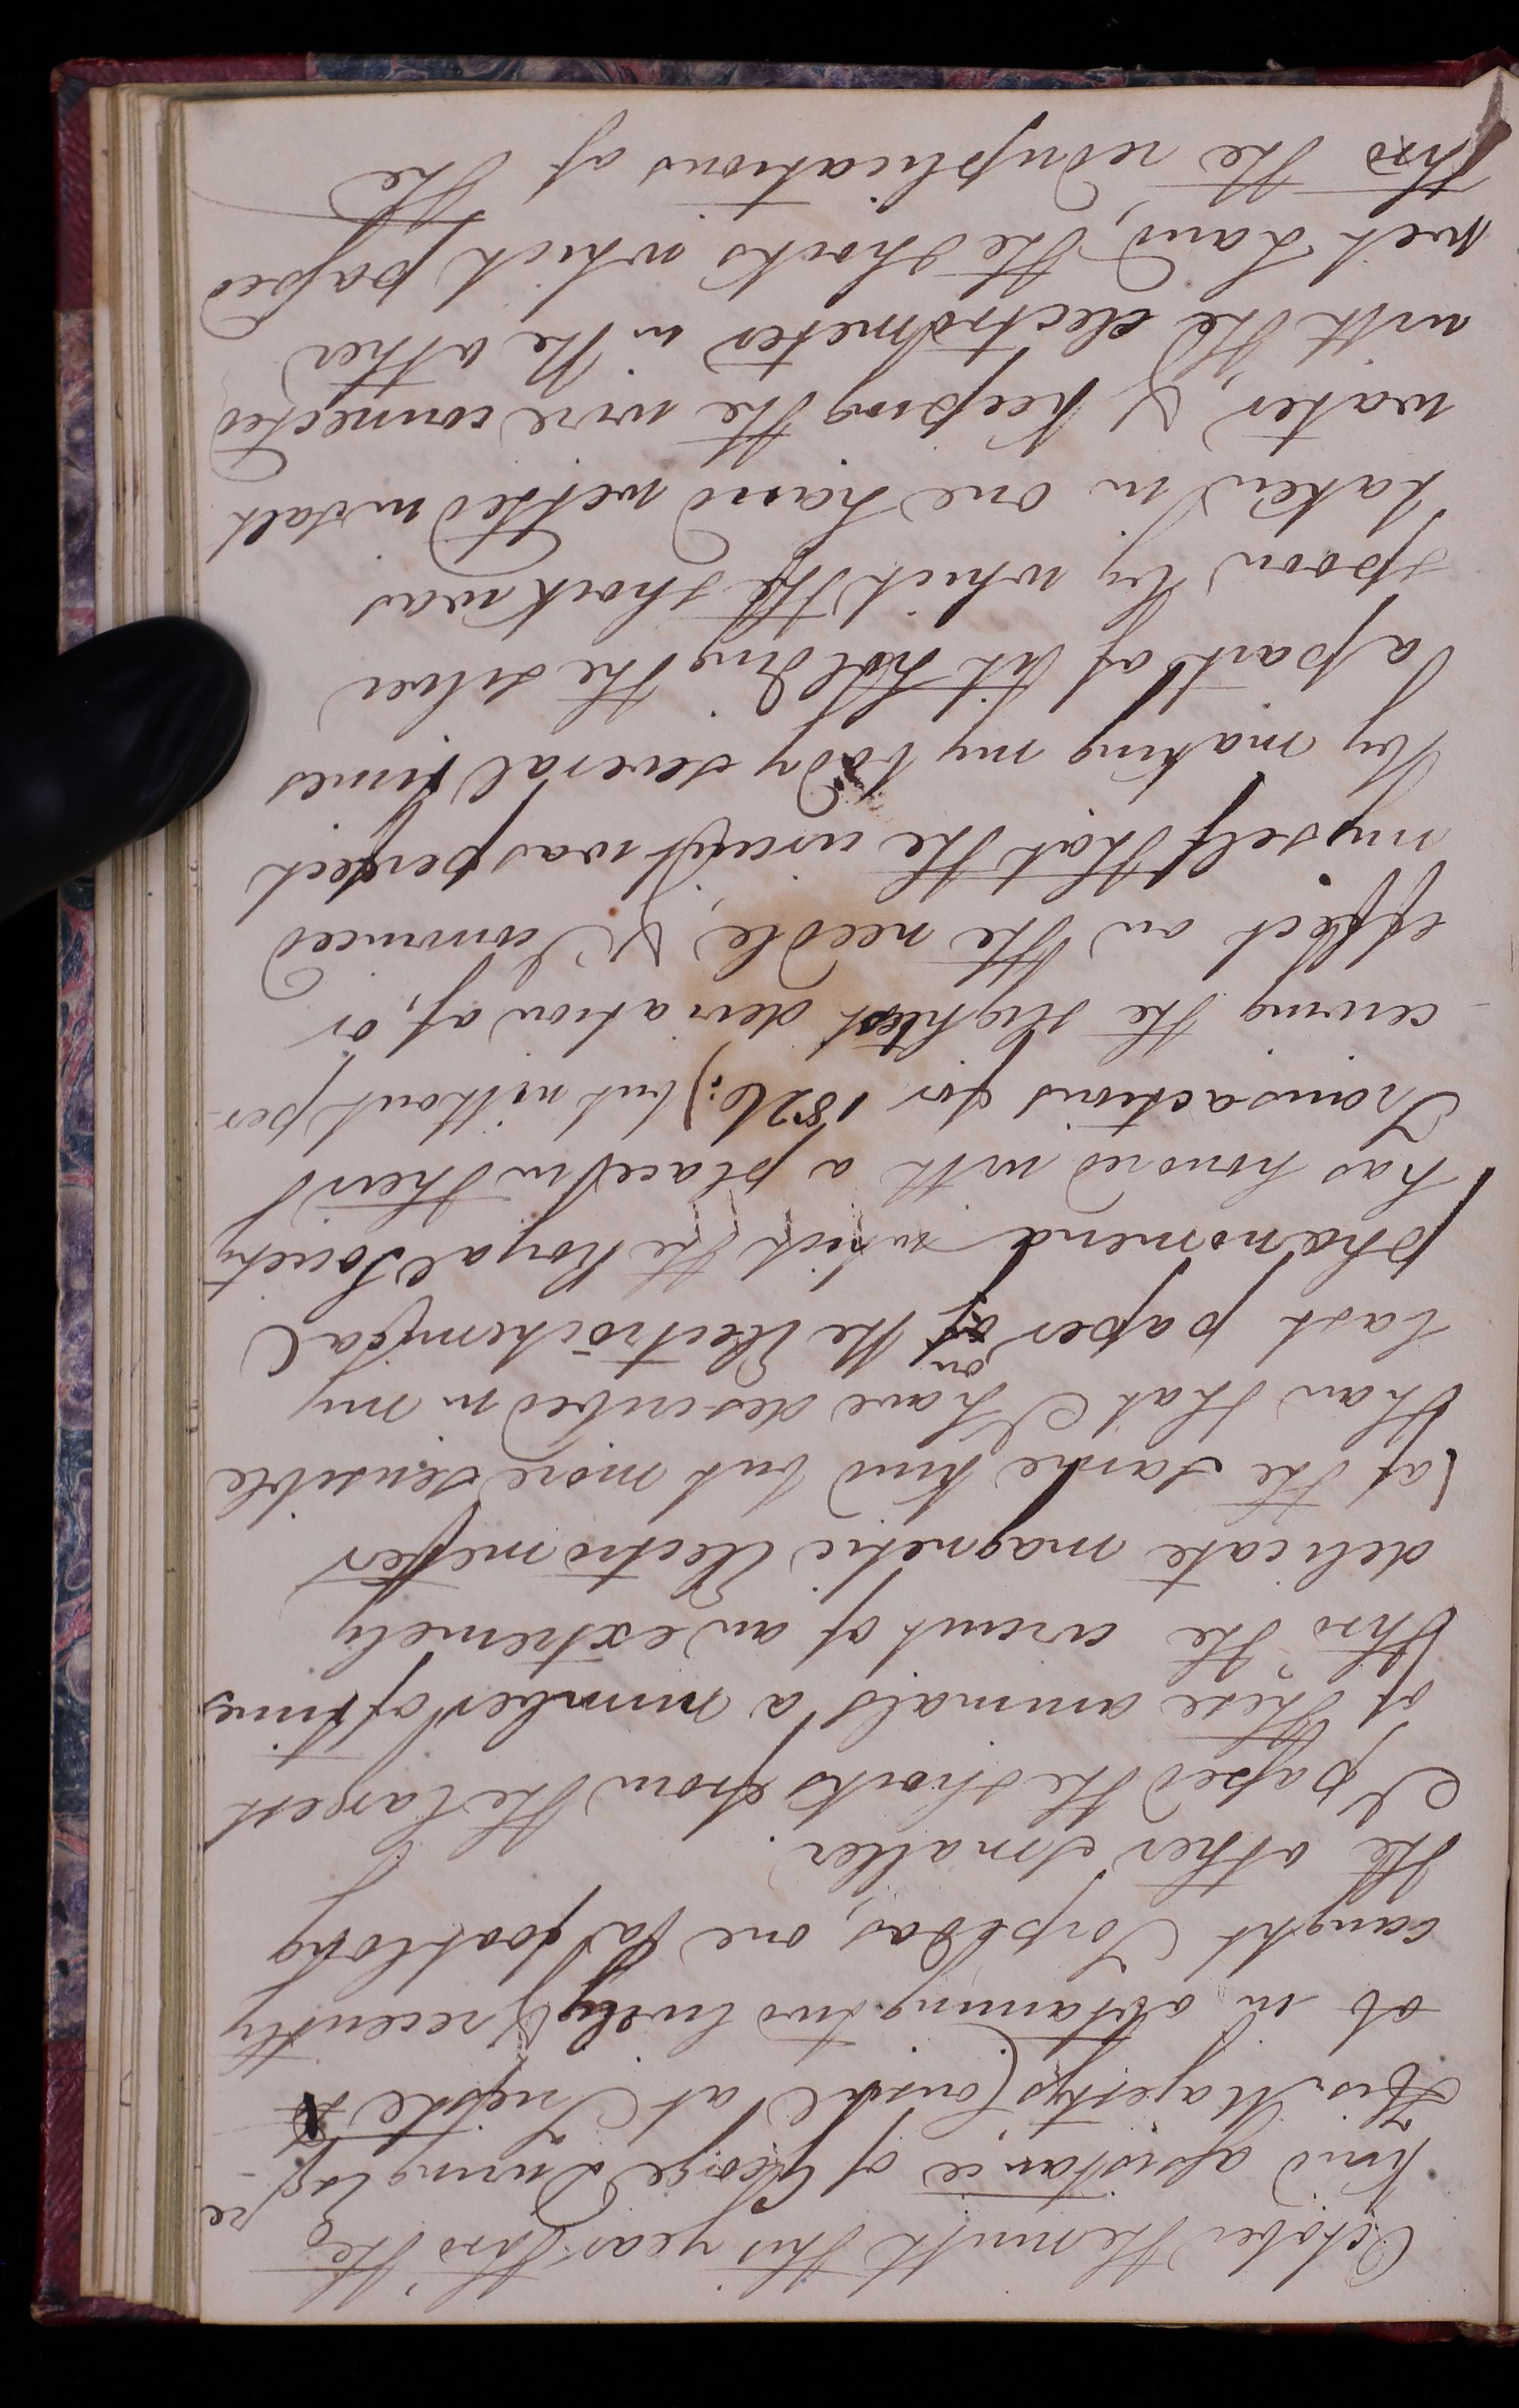 October the ninth this year thro' the
kind assistance of George Dering Esqre
His Majesty's Consul at Trieste
at in obtaining two lively & recently
caught Torpedos, one a foot long
the other smaller.
I passed the shocks from the largest
of these animals a number of times
thro' the circuit of an extremely
delicate magnetic Electrometer
(of the same kind but more sensible
than that I have described in my
last paper on the Electrochemical
phænomena which the Royal Society
has honored with a place in their
Transactions for 1826:) but without per-
-ceiving the slightest deviation of, or
effect on the needle, & I convinced
myself that the circuit was perfect
by making my body several times
a part of it holding the silver
spoon by which the shock was
taken in one hand wetted in salt
water, & keeping the wire connected
with the electrometer in the other
wet hand, the shocks which passed
thro the reduplications of the